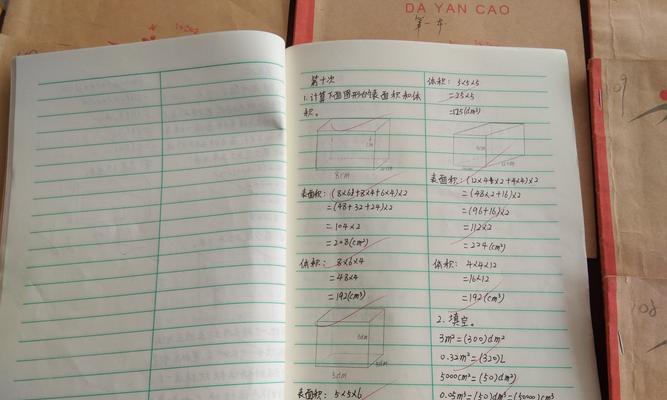 DA YAN CAO
第一本
第十次
1.计算下面图形的表面积和体
积。
8cm
表面积:(8×6+8×4+6×4)×2
=(48+32+24)×2
=104×2
=208(cm²)
体积: 8×6×4
=48×4
=192(cm³)
5dm
表面积:5×5×6
体积:5×5×5
=25×5
=125(dm³)
表面积:(12×4×2+4×4)×2
=(48×2+16)×2
=(96+16)×2
=112×2
=224(cm²)
体积: 4×4×12
=16×12
=192(cm³)
2.填空。
3m²=(300)dm²
0.32m³=(320)L
5000cm²=(50)dm²
0.05m³=(50)dm³=(50000)cm³